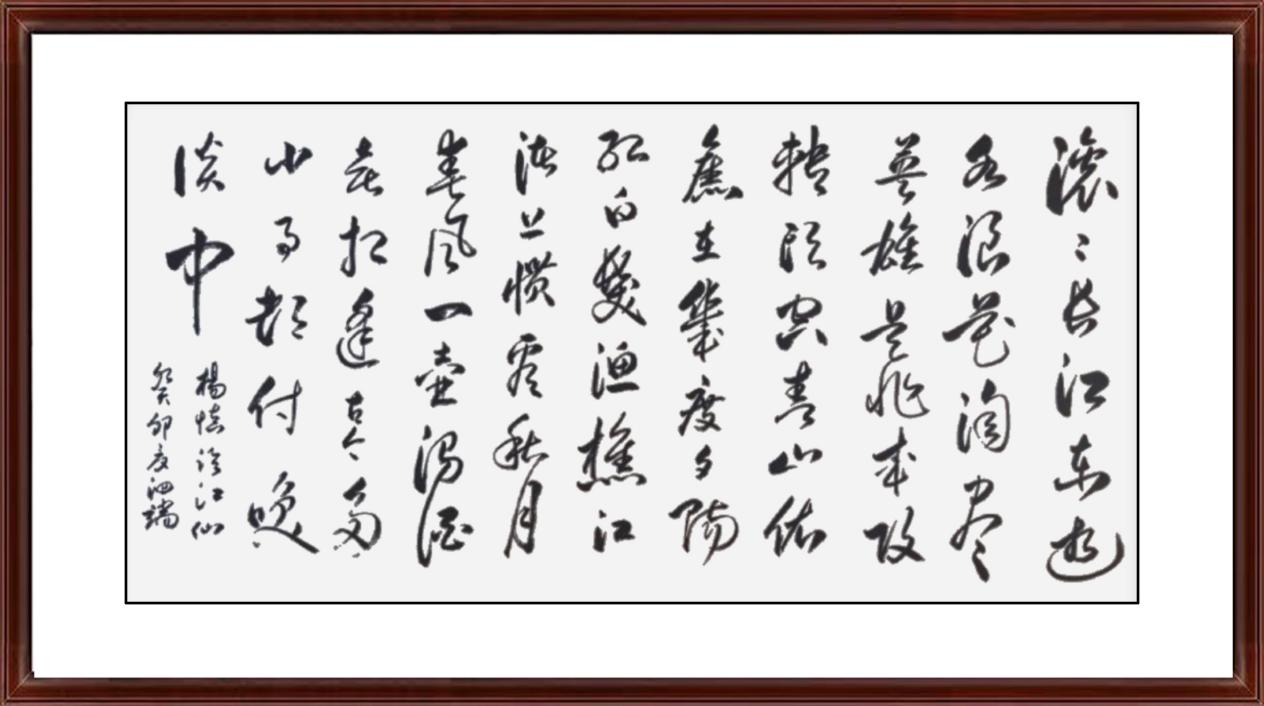 滚〻长江东逝
水浪花淘尽
英雄是非成败
转头空青山依
舊在几度夕阳
红白髮渔樵江
渚上惯看秋月
春风一壶浊酒
喜相逢古今多
少事都付咲
谈中
楊慎临江仙
癸卯夏泗端